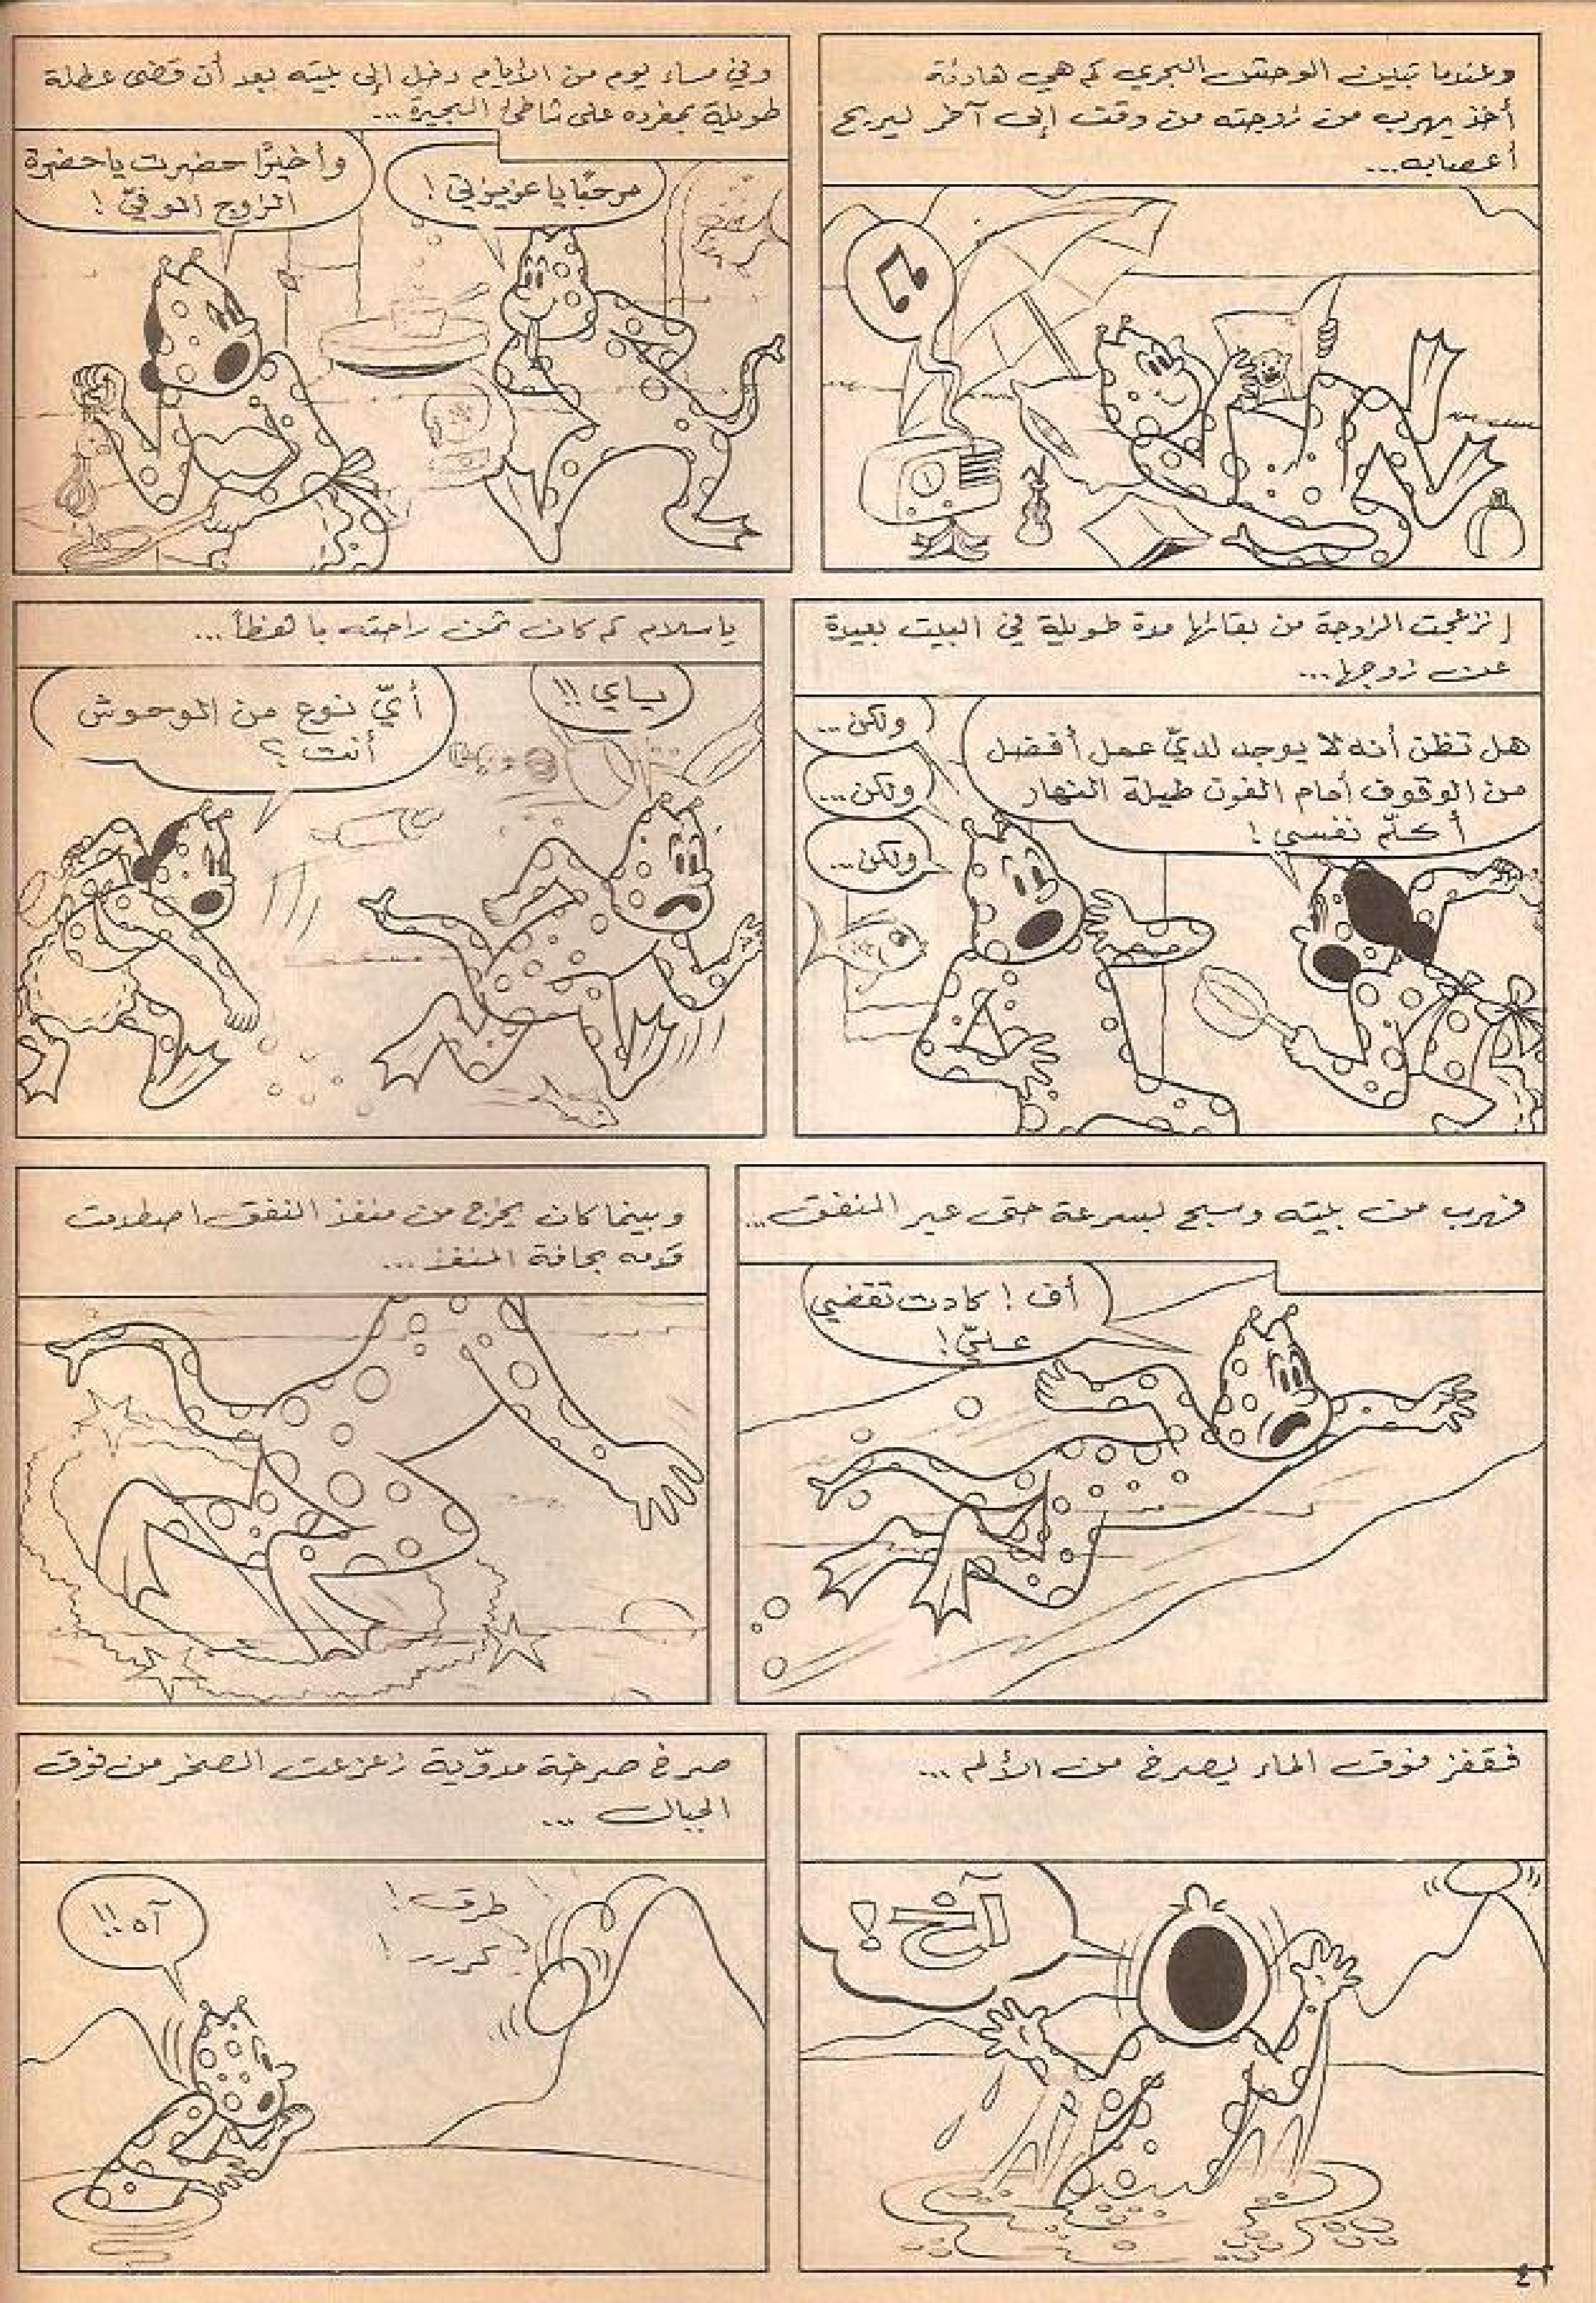 وعندما تبين الوحش البحري كم هي هادئة
أخذ يهرب من زوجته من وقت إلى آخر ليريح
أعصابه...
وفي مساء يوم من الأيام دخل إلى بيته بعد أن قضى عطلة
طويلة بمفرده على شاطئ البحيرة...
مرحبًا يا عزيزتي!
وأخيرًا حضرت يا حضرة
الزوج الموقّر!
إنزعجت الزوجة من بقائها مدة طويلة في البيت بعيدة
عن زوجها...
هل تظن أنه لا يوجد لديّ عمل أفضل
من الوقوف أمام الفرن طيلة النهار
أكلّم نفسي!
ولكن...
ولكن...
ولكن...
يا سلام كم كان ثمن راحته باهظاً...
ياي!!
أيّ نوع من الوحوش
أنت؟
فهرب من بيته وسبح بسرعة حتى عبر النفق...
أف! كادت تقضي
عليّ!
وبينما كان يخرج من منفذ النفق اصطدمت
قدمه بحافة المنفذ...
فقفز فوق الماء يصرخ من الألم...
آخ!
صرخ صرخة مدوّية زعزعت الصخر من فوق
الجبال...
طرق!
كررر!
آه!!
٤٢